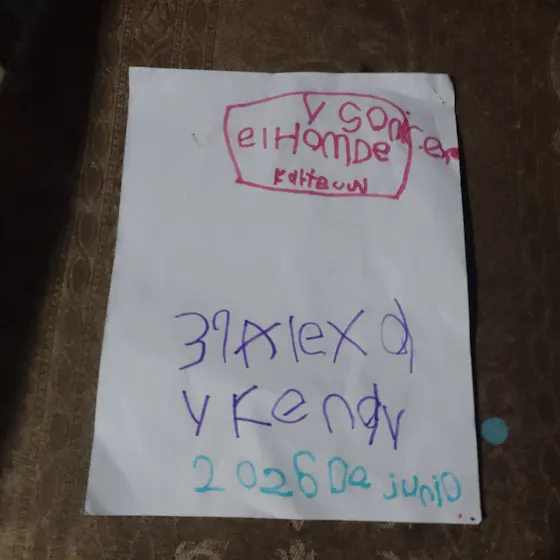 y sonic.exe
el HomDe
KaitBouW
39 Alexa
y Kendy
2026 De junio